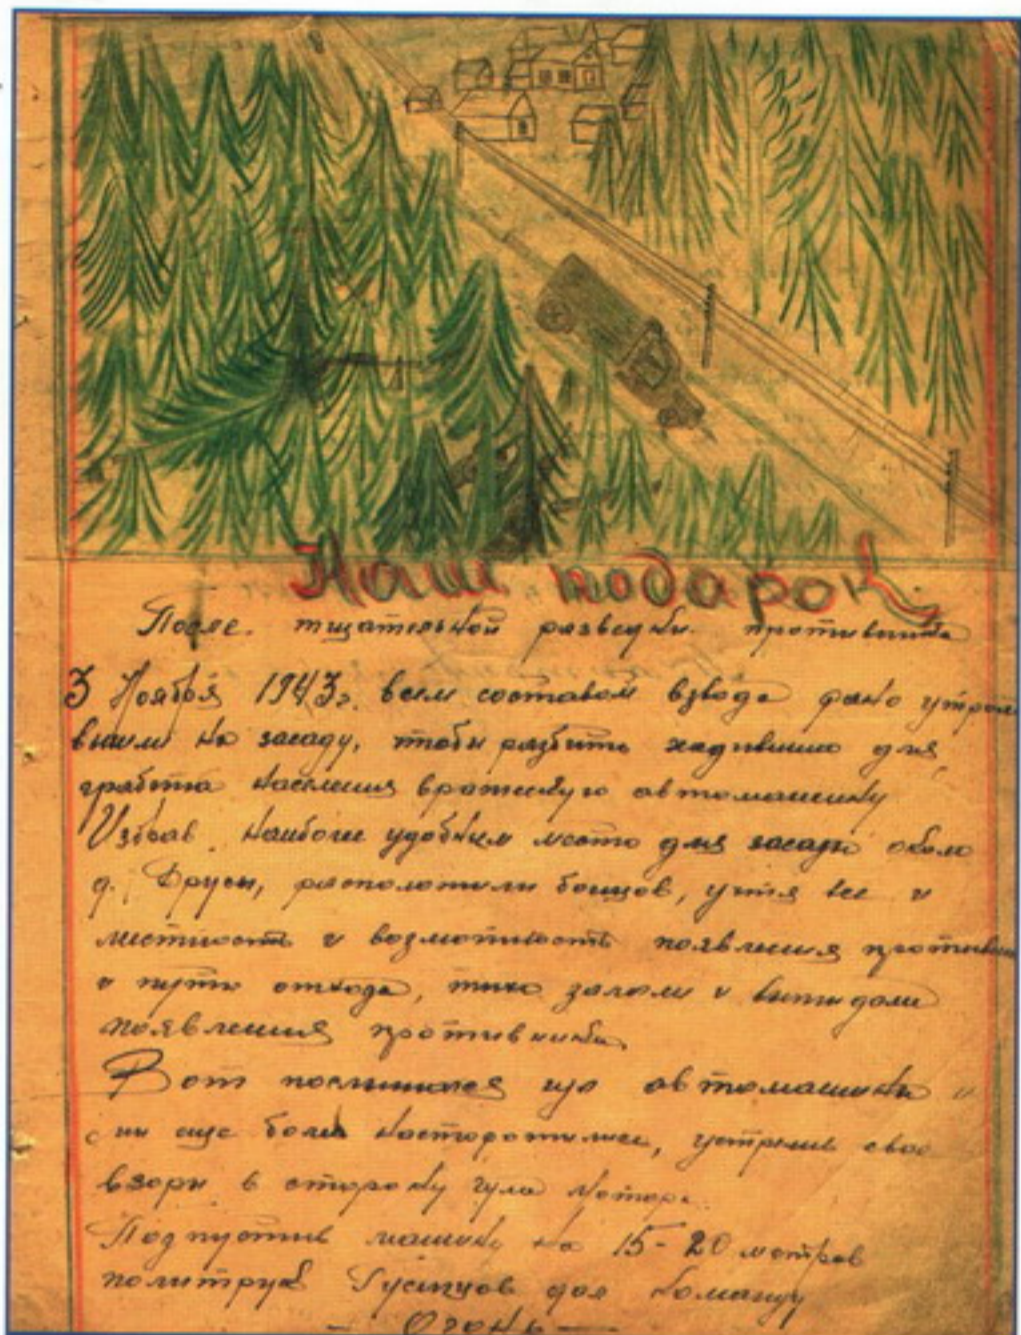 Наш подарок.
После тщательной разведки противника
3 Ноября 1943г. всем составом взвода рано утром
вышли на засаду, чтобы разбить ходившую для
грабежа населения вражескую автомашину
Избрав наиболее удобным место для засады около
д. Брусы, расположили бойцов, учтя все и
местность и возможность появления противни
и пути отхода, тихо залегли и выжидали
появления противника.
Вот послышался гул автомашины и
ии еще более насторожились, устремив свои
взоры в сторону гула мотора.
Подпустив машину на 15-20 метров
политрук дал команду
— Огонь —